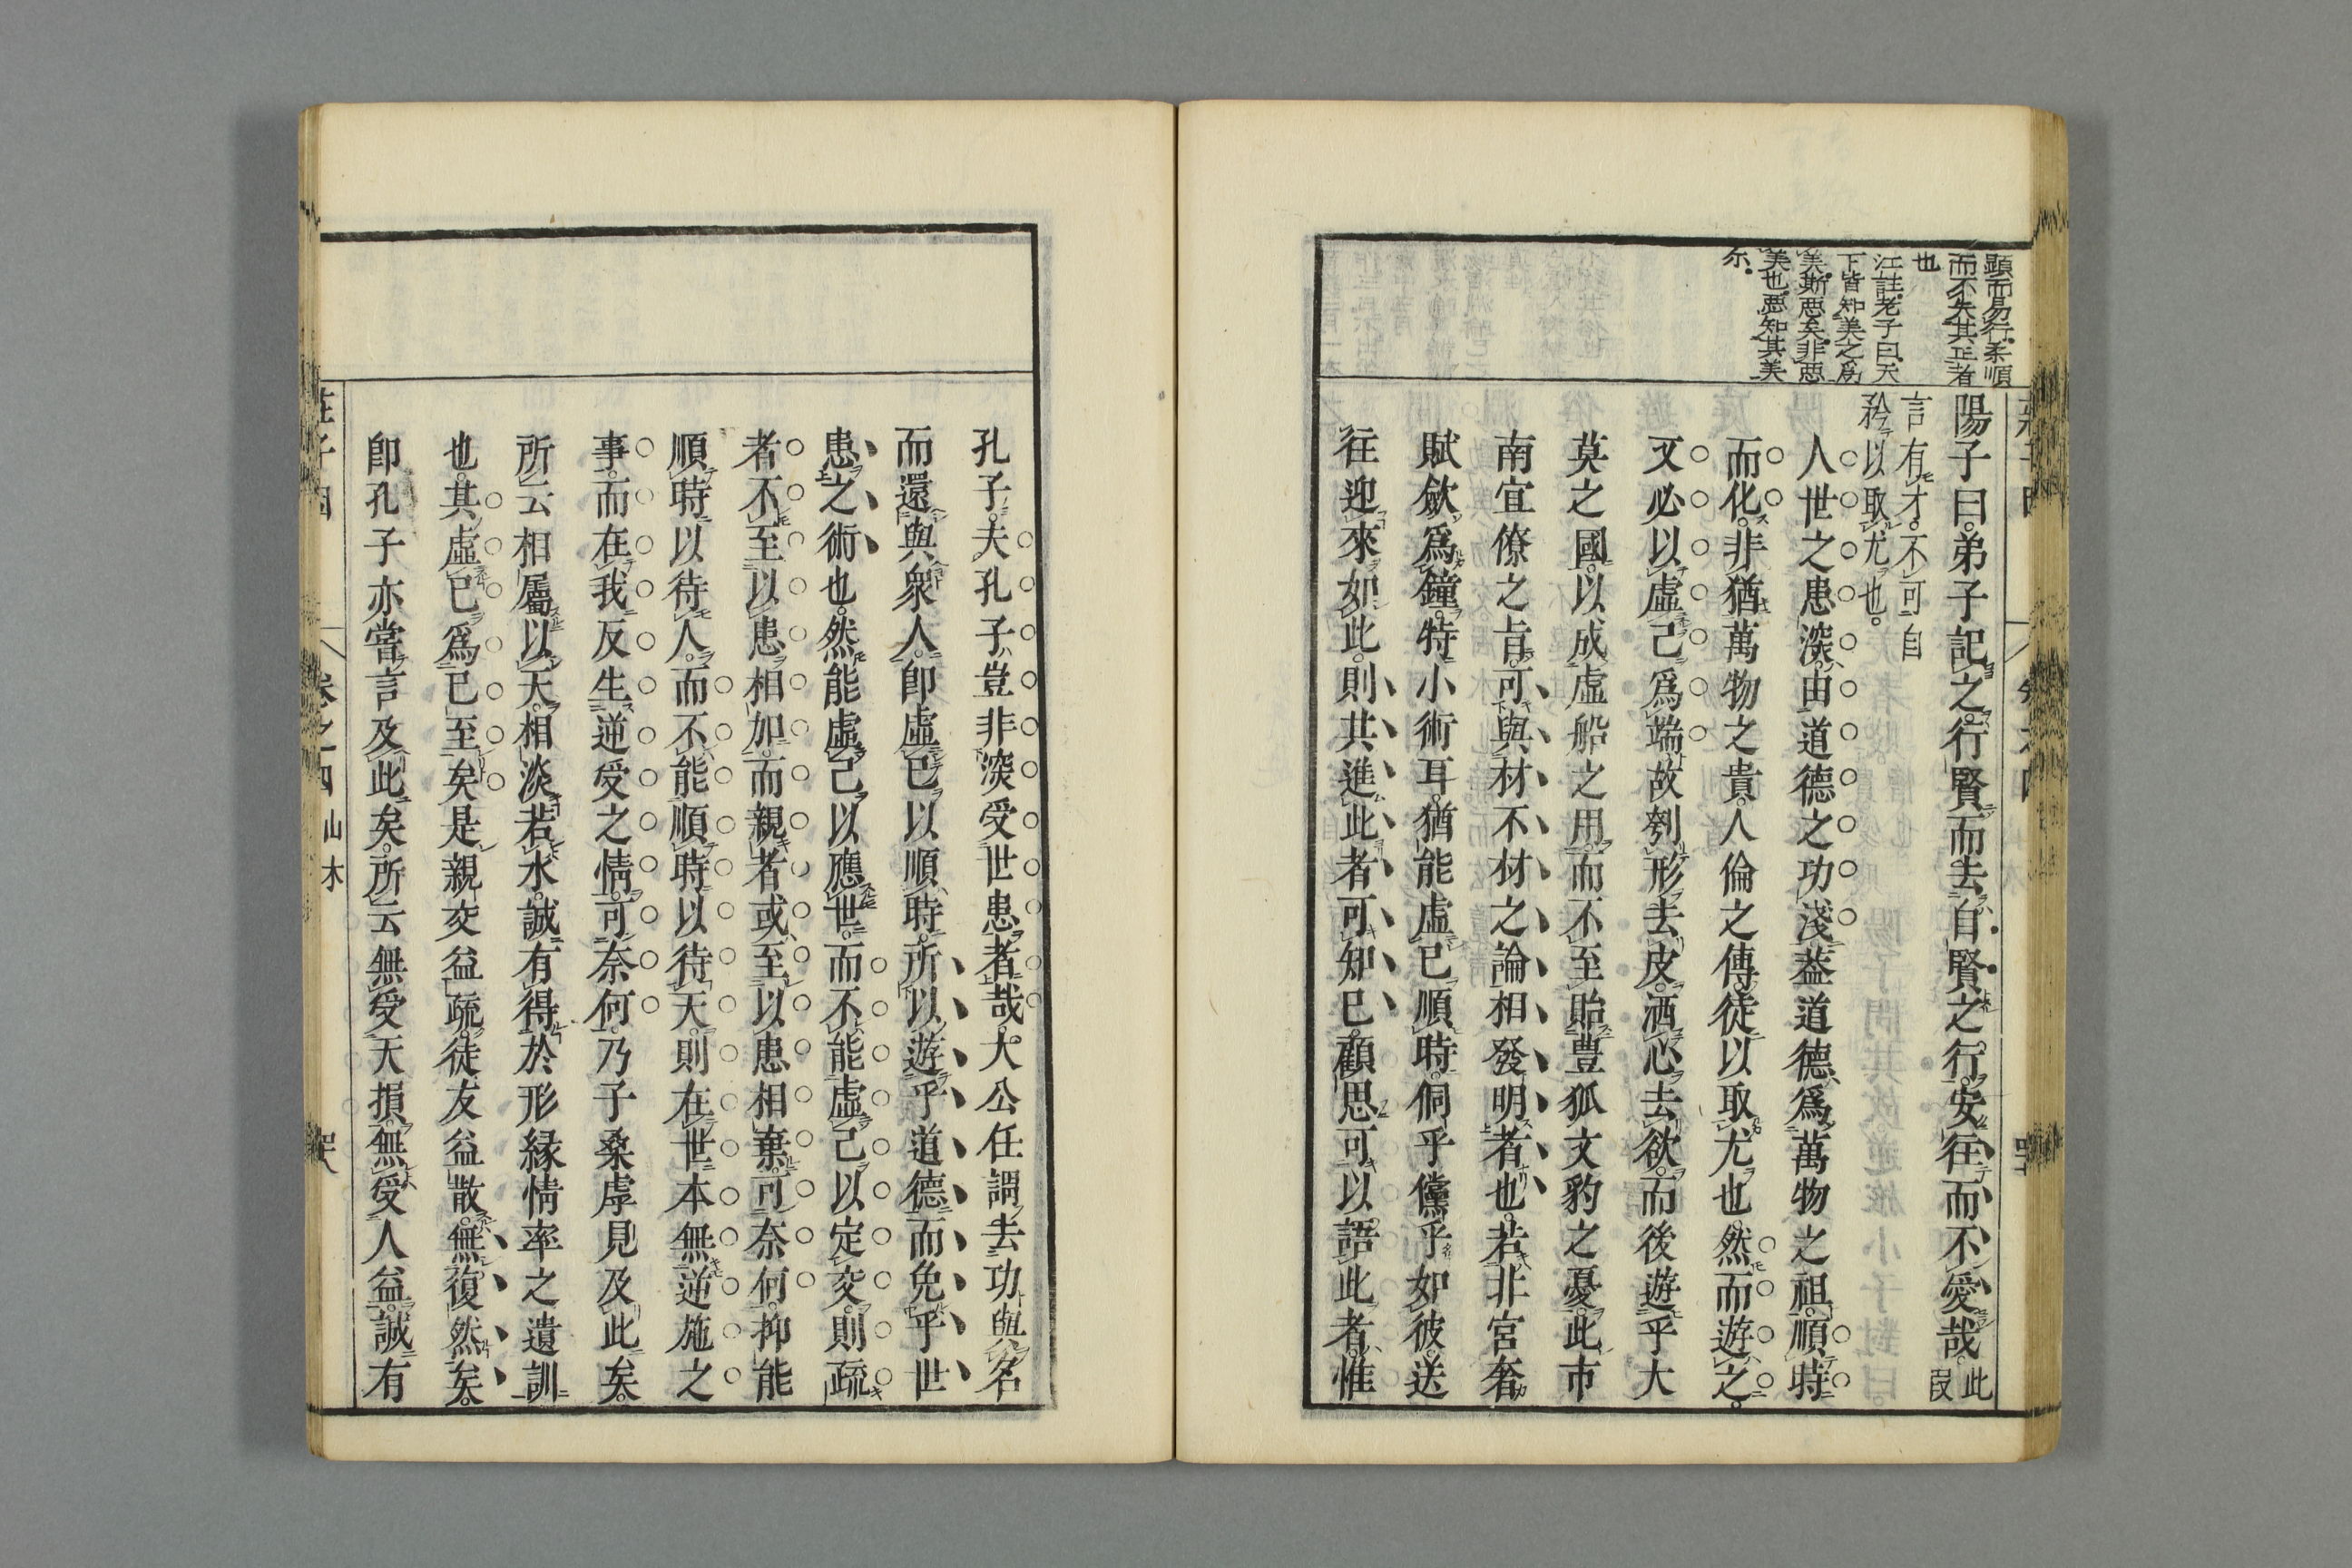 顕而易行。柔順
而不失其正者
也
江註。老子曰。天
下皆知美之爲
美。斯惡矣。非惡
美也。惡知其美
尓。
陽子曰。弟子記之。行賢而去自賢之行。安往而不愛哉。此段
言有才。不可自
矜以取尤也。
人世之患深。由道德之功淺。葢道德爲萬物之祖。順時
而化。非猶萬物之貴。人倫之傳。徒以取尤也。然而遊之。
文必以虛己爲端。故刳形去皮。洒心去欲。而後遊乎大
莫之國。以成虛船之用。而不至貽豊狐文豹之憂。此市
南宜僚之㫖。可與材不材之論相發明者也。若非宮奢
賦斂爲鐘。特小術耳。猶能虛已順時。侗乎儻乎。如彼。送
往迎來。如此。則其進此者可知已。顧思可以語此者。惟
孔子。夫孔子豈非深受世患者哉。大公任謂去功與名
而還與衆人。卽虛已以順時。所以遊乎道德而免乎世
患之術也。然能虛己以應世。而不能虛己以定交。則疏
者不至以患相加。而親者或至以患相棄。可奈何。抑能
順時以待人。而不能順時以待天。則在世本無逆施之
事。而在我反生逆受之情。可奈何。乃子桑雽見及此矣。
所云相屬以天。相淡若水。誠有得於形縁情率之遺訓
也。其虛已爲已至矣。是親交益疏。徒友益散。無復然矣。
卽孔子亦當言及此矣。所云無受天損。無受人益。誠有
卷之四 山木